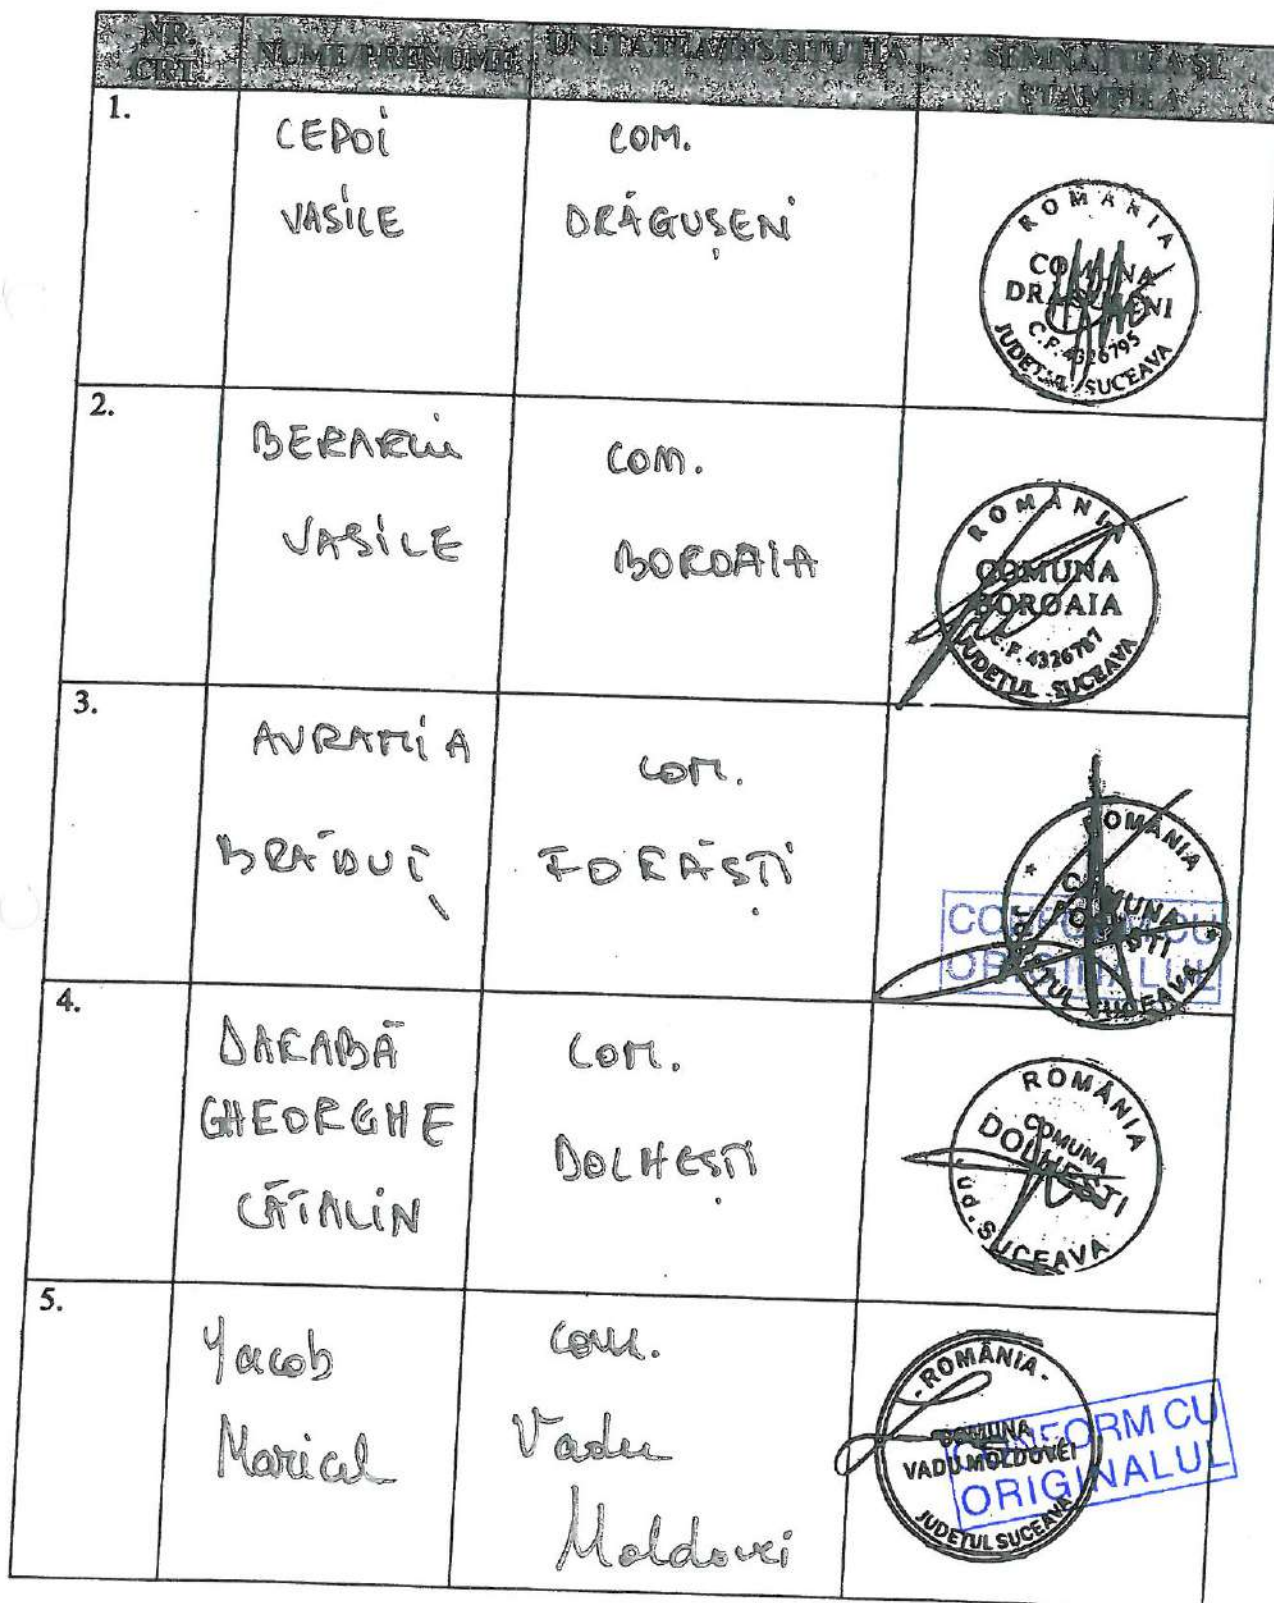 NR. CRT.
NUME/PRENUME
UNITATEA/INSTITUTIA
SEMNATURA SI STAMPILA
1.
CEPOI
VASILE
COM.
DRĂGUȘENI
ROMANIA
COMUNA
C.F. 4326795
JUDETUL SUCEAVA
2.
VASILE
COM.
BOROAIA
ROMÂNIA
COMUNA
BOROAIA
C.F. 4326787
JUDETUL SUCEAVA
3.
AVRAMIA
BRĂDUȚ
COM.
FORĂȘTI
ROMÂNIA
COMUNA
SUCEAVA
CONFORM CU
ORIGINALUL
4.
DARABĂ
GHEORGHE
CĂTĂLIN
COM.
DOLHEȘTI
ROMÂNIA
COMUNA
DOLHESTI
Jud. SUCEAVA
5.
Iacob
Maricel
com.
Vadu
Moldovei
-ROMÂNIA-
COMUNA
VADU MOLDOVEI
JUDETUL SUCEAVA
CONFORM CU
ORIGINALUL